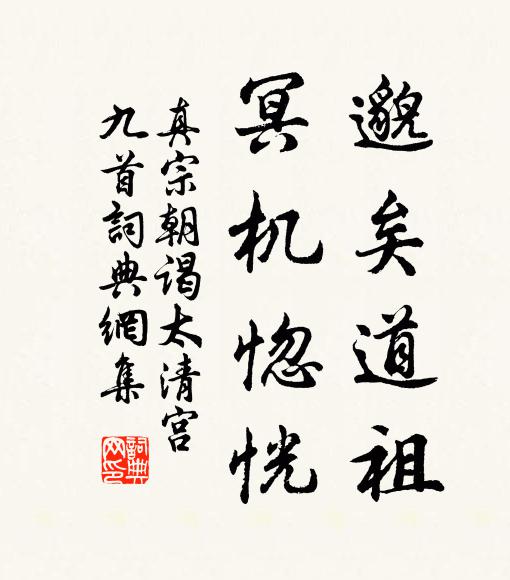 邈矣道祖
冥机惚恍
真宗朝谒太清宫
九首詞典網集
詞典网印